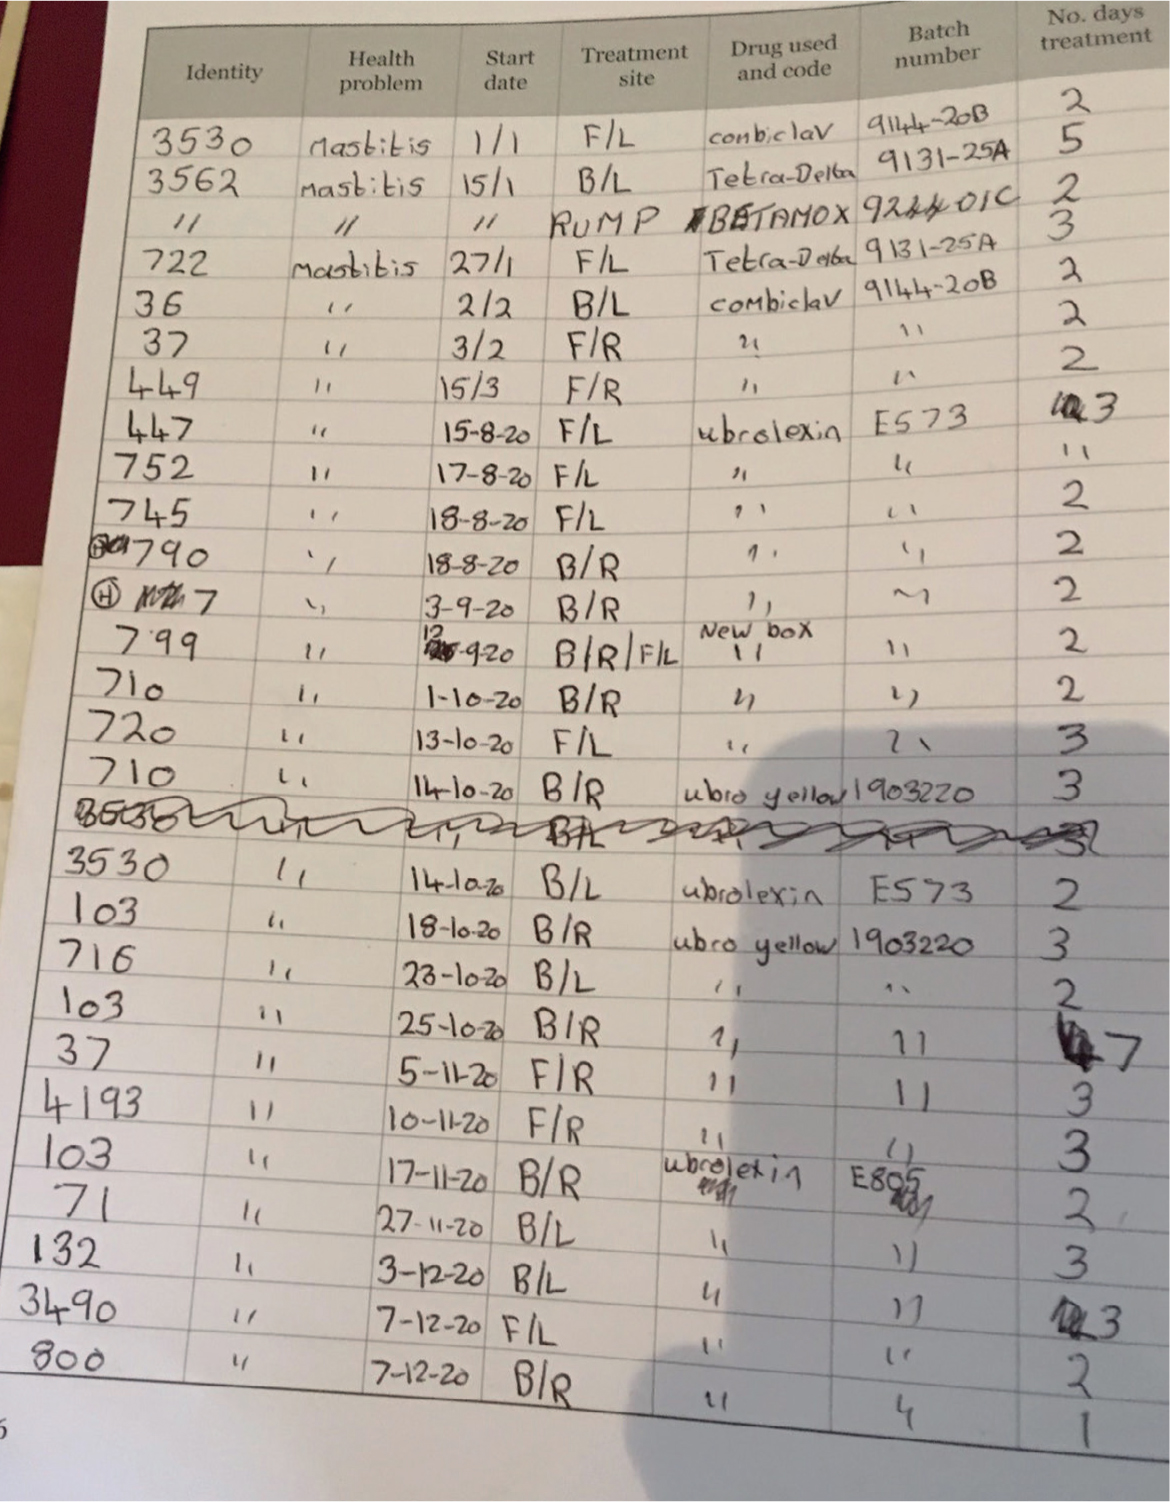 Identity Health problem Start date Treatment site Drug used and code Batch number No. days treatment
3530 Mastitis 1/1 F/L combiclav 9144-20B 2
3562 Mastitis 15/1 B/L Tetra-Delta 9131-25A 5
" " " RUMP BETAMOX 2
722 Mastitis 27/1 F/L Tetra-Delta 9131-25A 3
36 " 2/2 B/L combiclav 9144-20B 2
37 " 3/2 F/R " " 2
449 " 15/3 F/R " " 2
447 " 15-8-20 F/L ubrolexin E573 3
752 " 17-8-20 F/L " " "
745 " 18-8-20 F/L " " 2
790 " 18-8-20 B/R " " 2
Ⓗ 7 " 3-9-20 B/R " " 2
799 " 12-9-20 B/R/F/L New box " " 2
710 " 1-10-20 B/R " " 2
720 " 13-10-20 F/L " " 3
710 " 14-10-20 B/R ubro yellow 1903220 3
3530 " 14-10-20 B/L ubrolexin E573 2
103 " 18-10-20 B/R ubro yellow 1903220 3
716 " 23-10-20 B/L " " 2
103 " 25-10-20 B/R " " 7
37 " 5-11-20 F/R " " 3
4193 " 10-11-20 F/R " " 3
103 " 17-11-20 B/R ubrolexin E805 2
71 " 27-11-20 B/L " " 3
132 " 3-12-20 B/L " " 3
3490 " 7-12-20 F/L " " 2
800 " 7-12-20 B/R " " 1